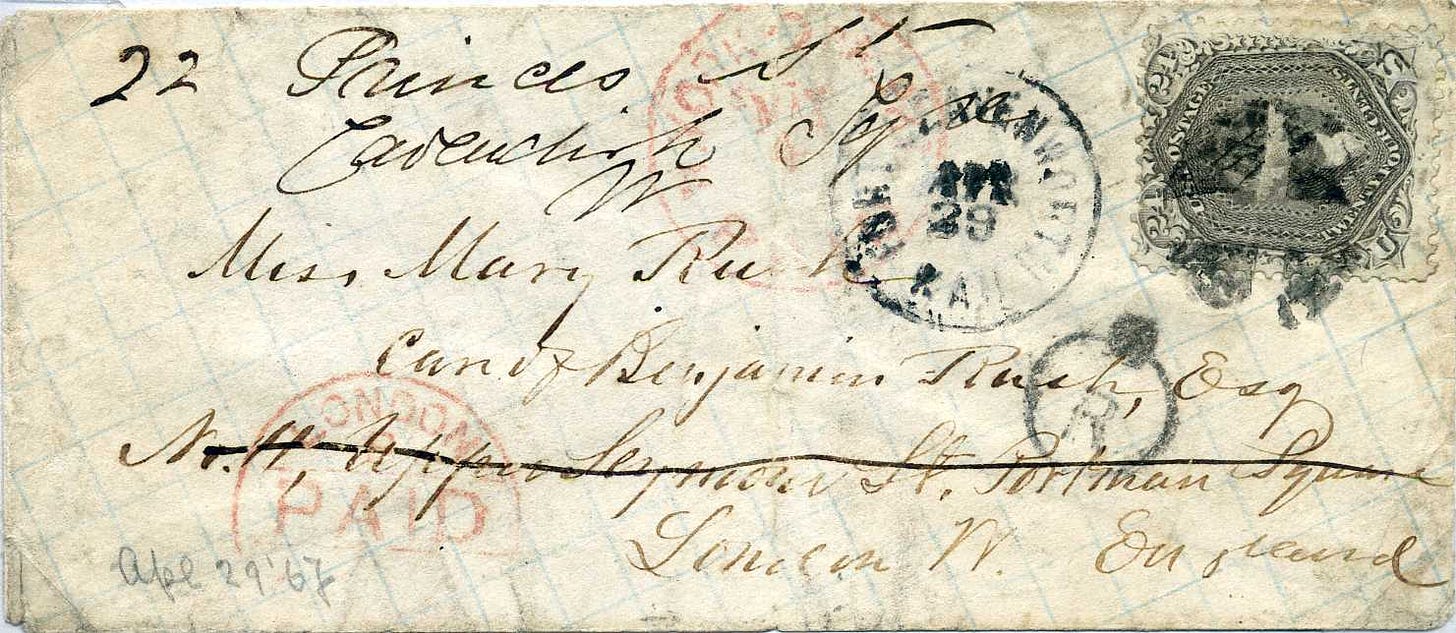 22 Princes St
Cavendish Sqre
W
Miss Mary Rush
Care of Benjamin Rush, Esq
No. 11, Upper Seymour St. Portman Square
London W. England
Apl 29 '67
FORT LEAVENWORTH
APR
29
KAN
LONDON
PAID
U.S. POSTAGE
24